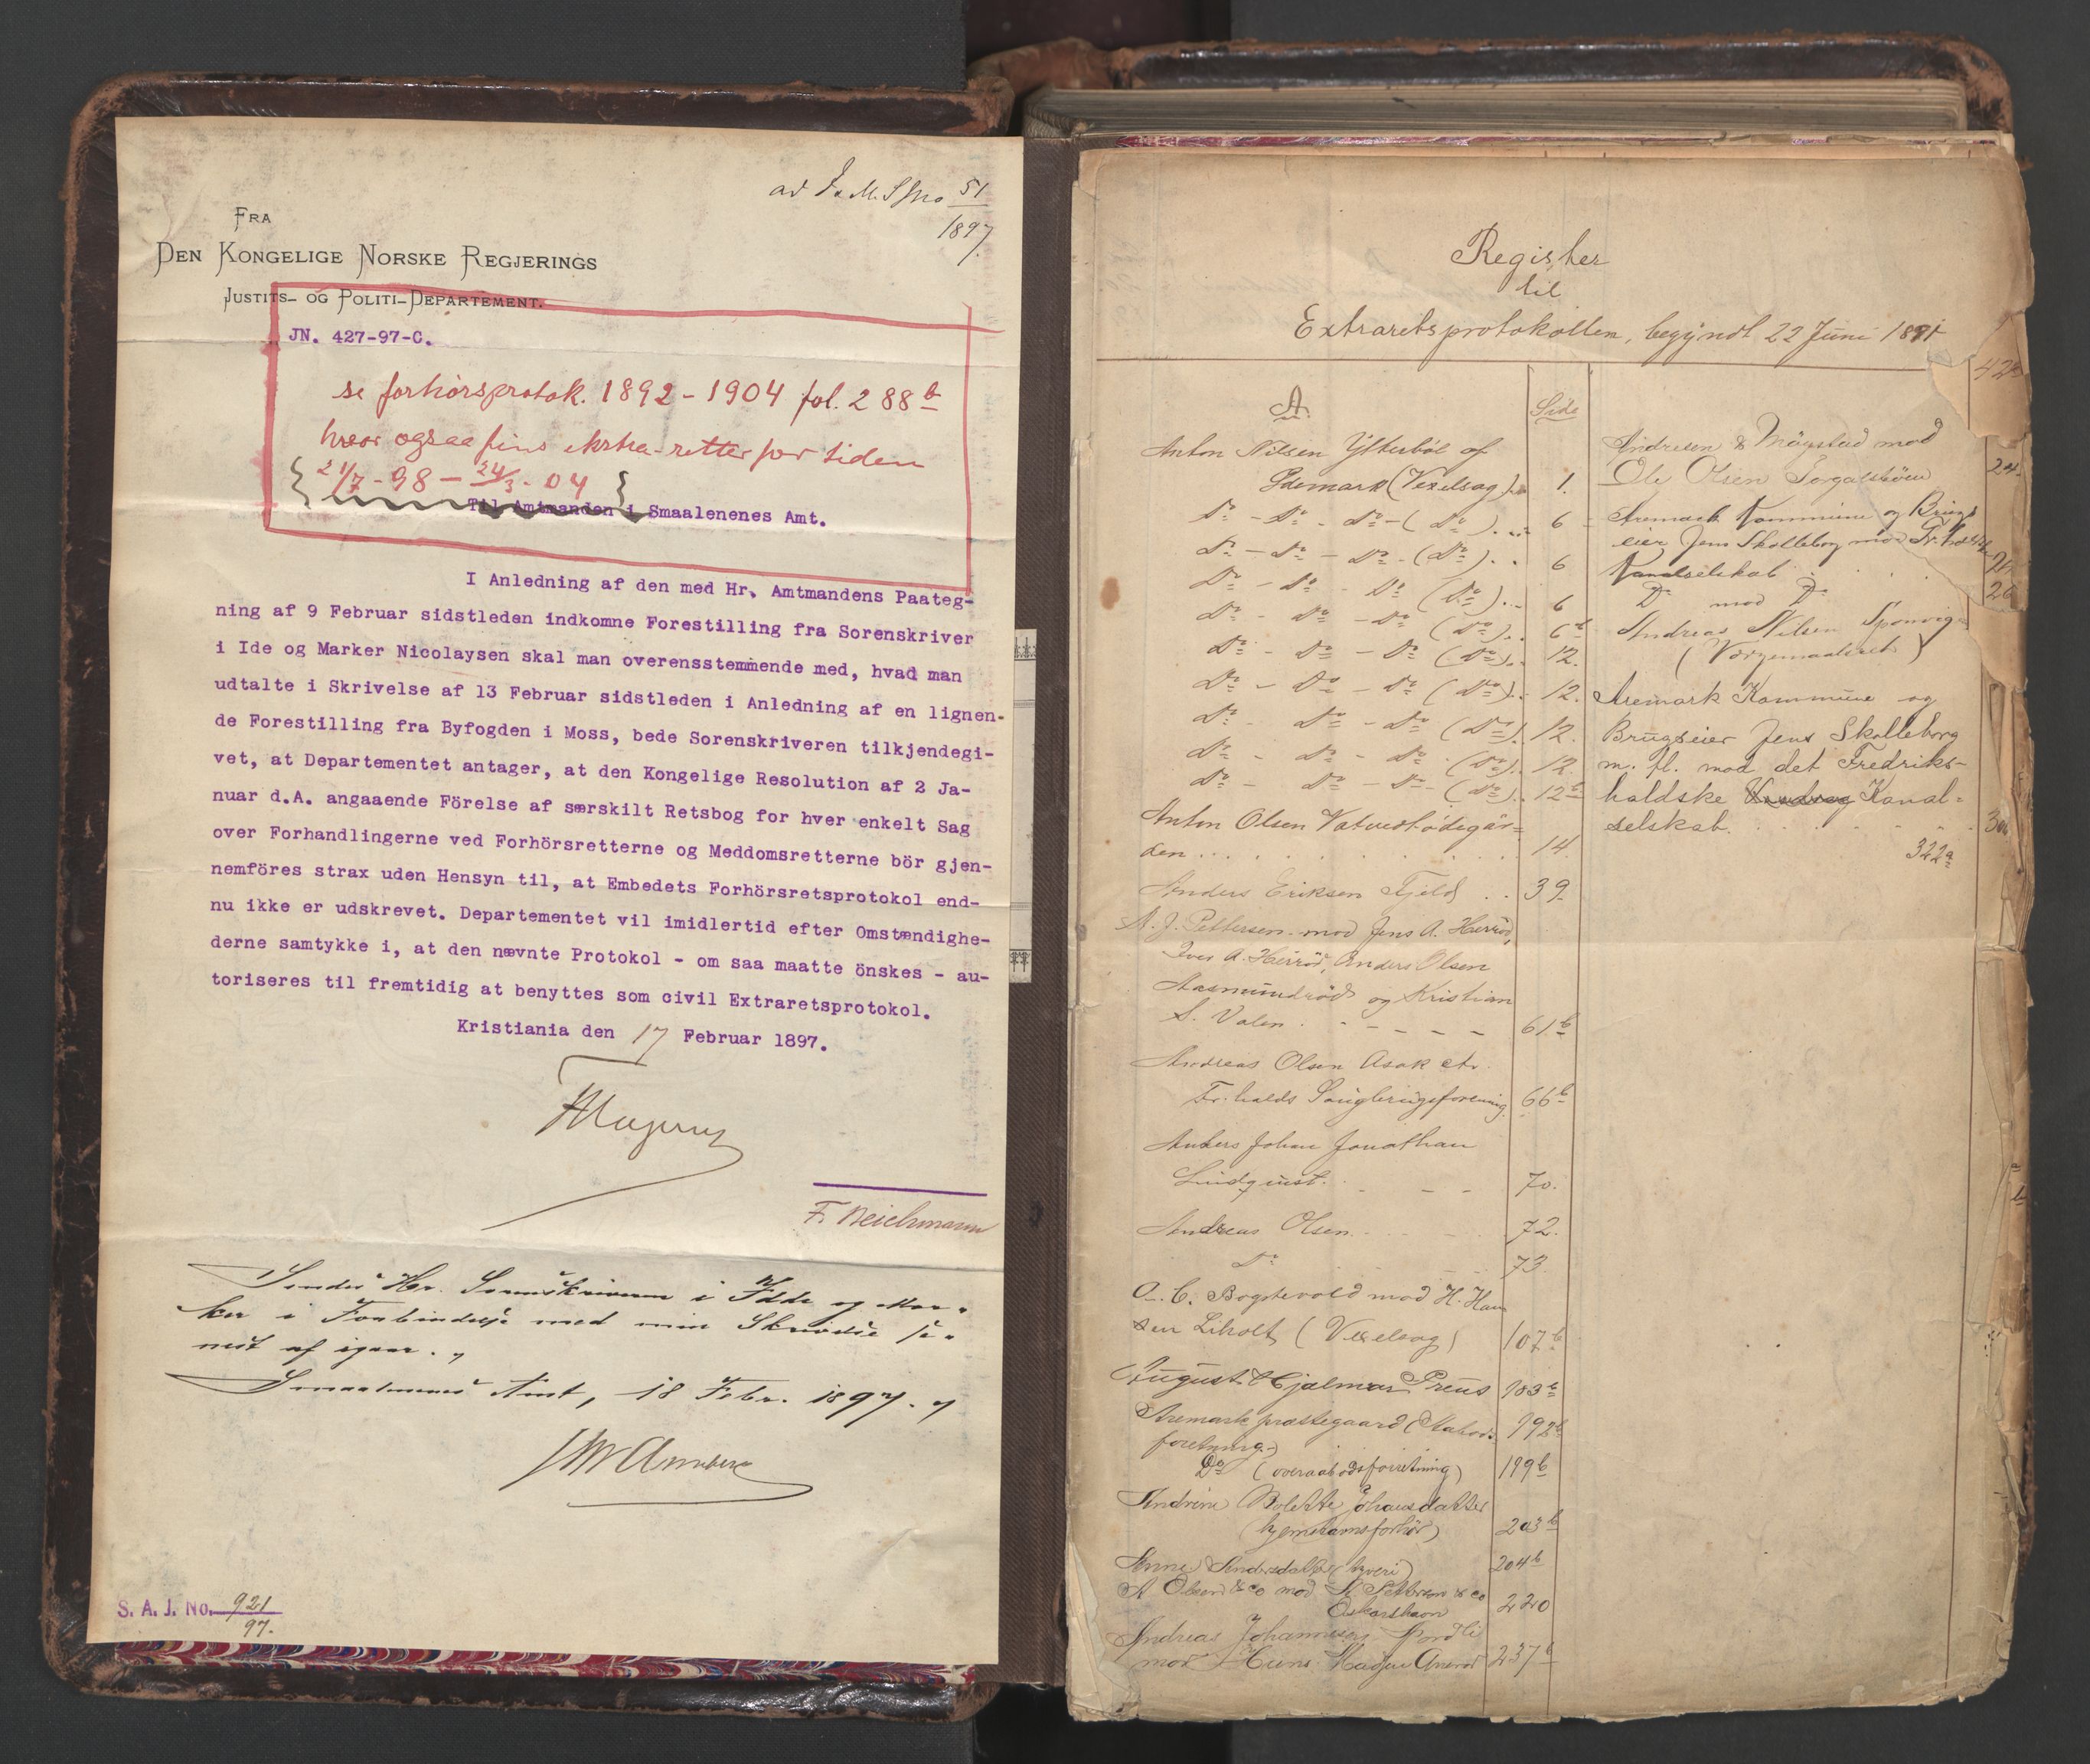 51
1897
FRA
DEN KONGELIGE NORSKE REGJERINGS
JUSTITS- OG POLITI-DEPARTEMENT.
JN. 427-97-C.
se forhörsprotok. 1892-1904 fol. 288 b
hvor ogsaa fins ekstra-retter for tiden
21/7-98 - 24/3-04
Til Amtmanden i Smaalenenes Amt.
I Anledning af den med Hr. Amtmandens Paateg-
ning af 9 Februar sidstleden indkomne Forestilling fra Sorenskriver
i Ide og Marker Nicolaysen skal man overensstemmende med, hvad man
udtalte i Skrivelse af 13 Februar sidstleden i Anledning af en lignen-
de Forestilling fra Byfogden i Moss, bede Sorenskriveren tilkjendegi-
vet, at Departementet antager, at den Kongelige Resolution af 2 Ja-
nuar d.A. angaaende Förelse af særskilt Retsbog for hver enkelt Sag
over Forhandlingerne ved Forhörsretterne og Meddomsretterne bör gjen-
nemföres strax uden Hensyn til, at Embedets Forhörsretsprotokol end-
nu ikke er udskrevet. Departementet vil imidlertid efter Omstændighe-
derne samtykke i, at den nævnte Protokol - om saa maatte önskes - au-
toriseres til fremtidig at benyttes som civil Extraretsprotokol.
Kristiania den 17 Februar 1897.
F. Beichmann
Sendes Hr. Sorenskriveren i Idde og Mar-
ker i Forbindelse med min Skrivelse se-
nest af igaar.
Smaalenenes Amt, 18 Febr. 1897.
S. A. J. No. 921
97.
Register
til
Extraretsprotokollen, begyndt 22 Juni 1891
A. Side
Anton Nilsen Ytterböl af
Idemark (Vexelsag) 1.
Do - Do - Do - (Do) 6
Do - Do - Do - (Do) 6
Do - Do - Do (Do) 6
Do - Do - Do (Do) 6 b
Do - Do - Do (Do) 12.
Do - Do - Do (Do) 12.
Do - Do - Do (Do) 12.
Do - Do - Do (Do) 12.
Do - Do - Do (Do) 12 b
Anton Olsen Vatvedtödegår-
den 14.
Anders Eriksen Fjeld 39
A. J. Pettersen mod Jens A. Herröd,
Iver A. Herröd, Anders Olsen
Aasmundröd og Kristian
S. Valen 61 b
Andreas Olsen Asak ctr.
Fr.halds Saugbrugsforening 66 b
Anders Johan Jonathan
Lindquist. 70.
Andreas Olsen 72.
Do 73
A. C. Bogstevold mod H. Han
sen Liholt (Vexelsag) 107 b
August Hjalmar Preus 183 b
Aremark præstegaard (Aabods- 192 b
forretning)
Do (overaabodsforretning) 199 b
Andrine Bolette Johansdatter
(hjemstamsforhör) 203 b
Anne Andersdatter (tyveri) 204 b
A Olsen & co mod A Petterson & co
Oskarshavn 220
Andreas Johannesen Nordli
mod Hans 237 b
Andresen & Mögstad mod
Ole Olsen 24
Aremark Kommune og Brugs
eier Jens Skolleborg mod Fr.haldske
Kanalselskab
Do mod Do 26
Andreas Nilsen Sponvig
(Værgemaalsret)
Aremark Kommune og
Brugseier Jens Skolleborg
m. fl. mod det Fredriks-
haldske Kanal-
selskab. 30
322 a